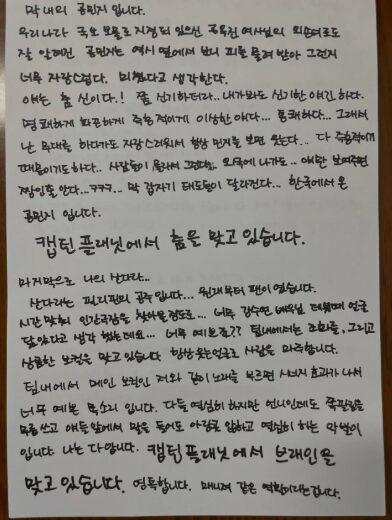 막내의 공민지 입니다.
우리나라 국보 보물로 지정되 있으신 공옥진 여사님의 외손녀로도
잘 알려진 공민지는 역시 옆에서 보니 피를 물려 받아 그런지
너무 자랑스럽다. 미쳤다고 생각한다.
얘는 춤 신이다.! 쫌 신기하더라.. 내가봐도 신기한 얘긴 하다.
명쾌하게 화끈하게 추는 적이게 이상한 애다... 통쾌하다... 그래서
난 무대를 하다가도 자랑스러워서 항상 민지를 보면 웃는다.. 다
때문이기도 하다.. 사람들이 몰라서 외국에 나가도.. 얘만 보여주면
짱인줄 안다.ㅋㅋㅋ.. 막 갑자기 태도들이 달라진다... 한국에서 온
공민지 입니다.
캡틴플래닛에서 춤을 맞고 있습니다.
마지막으로 나의 산다라..
산다라는 필리핀의 공주입니다... 원래부터 팬이 였습니다.
시간 맞춰 인간극장을 찾아볼정도로... 너무 강수연 배우님 데뷔때 얼굴
닮았다고 생각 했는데요... 너무 예쁘죠?? 팀내에서는 조화를, 그리고
상큼한 보컬을 맞고 있습니다 항상 웃는얼굴로 사람을 마주합니다.
팀내에서 메인 보컬인 저와 같이 노래를 부르면 시너지 효과가 나서
너무 예쁜 목소리 입니다. 다들 열심히 하지만 언니인데도 쪽팔림을
무릅쓰고 애들앞에서 맡은 동이도 아랑곳 않하고 열심히 하는 악발이
입니다. 나는 다 압니다. 캡틴플래닛에서 브레인을
맞고 있습니다. 영특합니다. 매니져 같은 역할이라는겁니다.